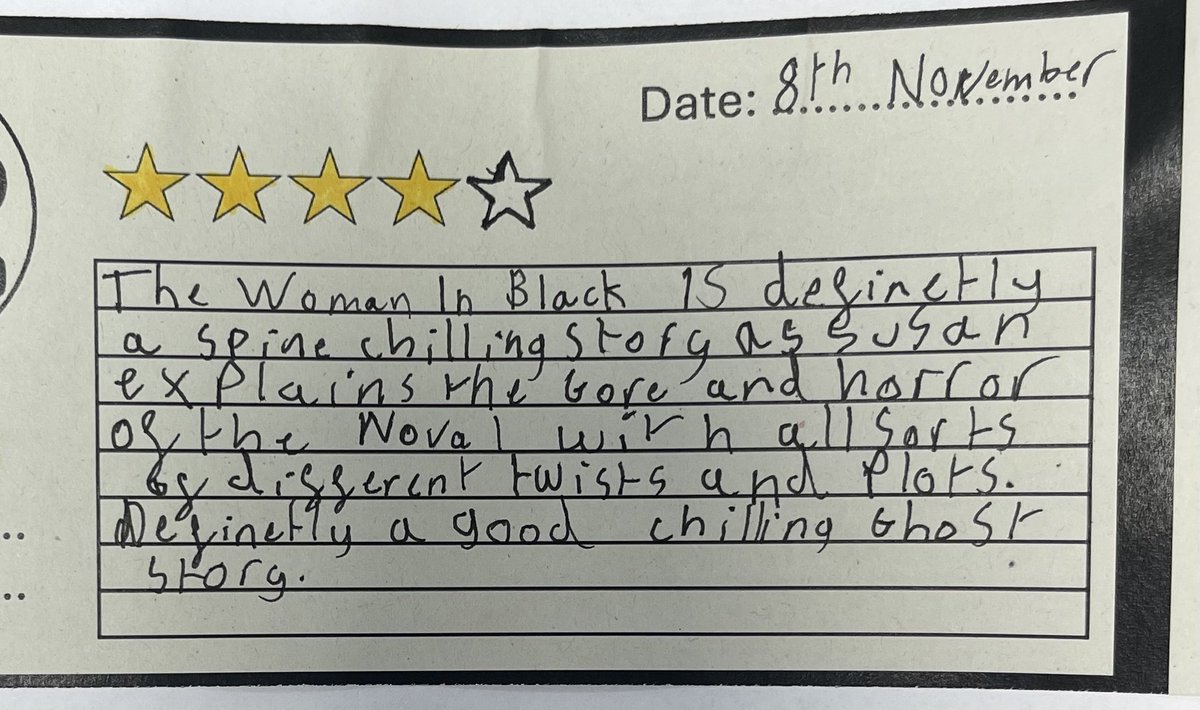 Date: 8th November
The Woman In Black IS definetly
a spine chilling story as susan
explains the Gore and horror
of the Noval with all sorts
of different twists and Plots.
Definetly a good chilling Ghost
story.